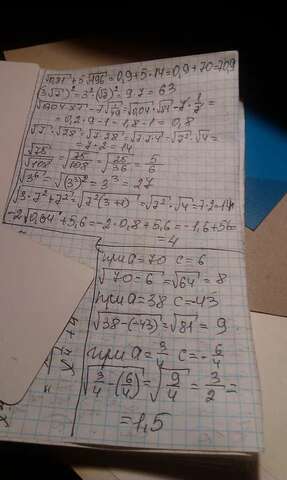 √0,81 + 5√196 = 0,9 + 5·14 = 0,9 + 70 = 70,9
(3√7)² = 3²·(√7)² = 9·7 = 63
√0,04·81 - 7√1/49 = √0,04·√81 - 7·1/7 =
= 0,2·9 - 1 = 1,8 - 1 = 0,8
√7·√28 = √7·28 = √7·7·4 = √7²·√4 =
= 7·2 = 14
√75/√108 = √75/108 = √25/36 = 5/6
√3⁶ = √(3³)² = 3³ = 27
√3·7²+7² = √7²(3+1) = √7²·√4 = 7·2 = 14
-2√0,64 + 5,6 = -2·0,8 + 5,6 = -1,6 + 5,6
= 4
при a = 70 c = 6
√70-6 = √64 = 8
при a = 38 c = -43
√38-(-43) = √81 = 9
при a = 3/4 c = -6/4
√3/4-(6/4) = √9/4 = 3/2 =
= 1,5